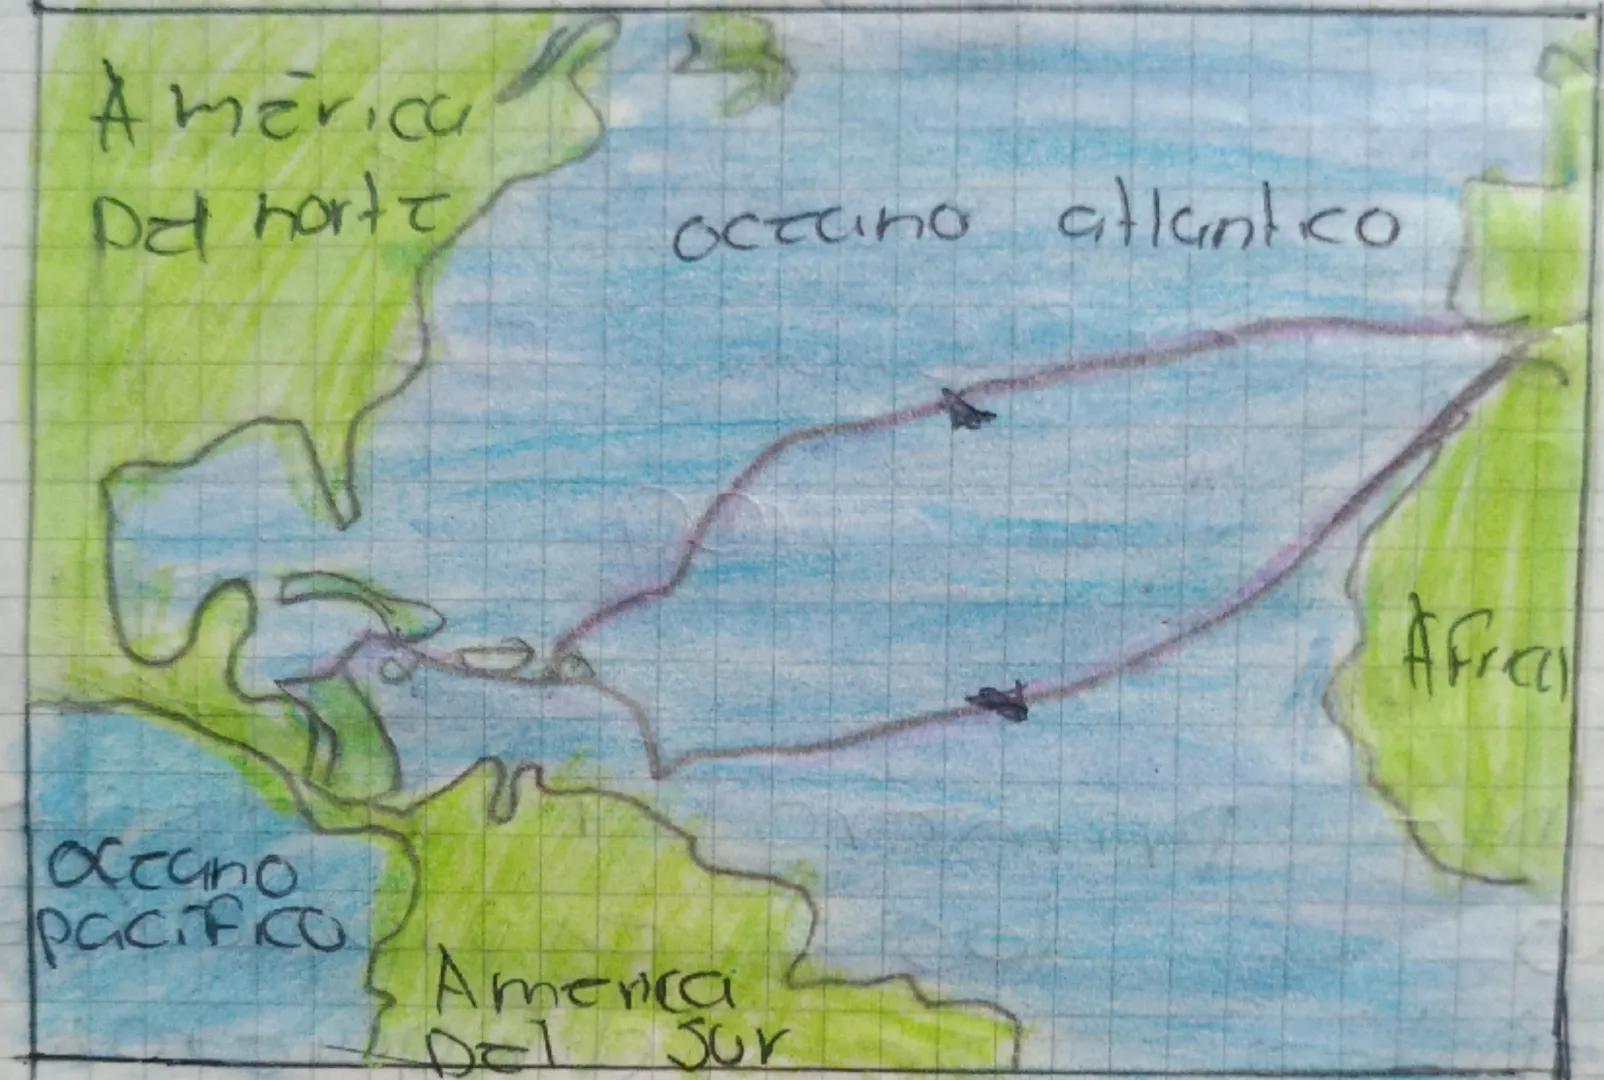 América
Del norte
oceano atlantico
Africa
oceano
pacifico
America
Del sur